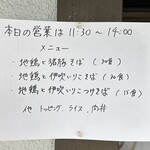 本日の営業は 11:30 〜 14:00
メニュー
・地鶏と猪豚そば (20食)
・地鶏と伊吹いりこそば (20食)
・地鶏と伊吹いりこつけそば (15食)
他 トッピング、ライス、肉丼